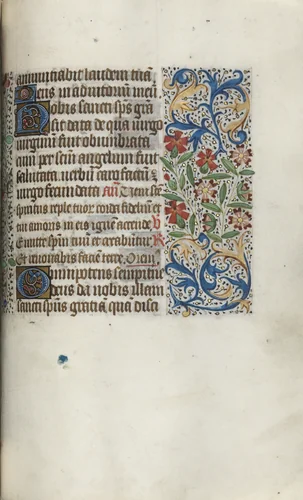 annunciabit laudem tuā
Deus in adiutoriū meū
Nobis sancti sp̄s gr̄a
sit data de qua virgo
virginū fuit obumbrata
cum per sctm̄ angelum fuit
salutata verbū caro factū ē
virgo fecundata Añ Veni sc̄e
spiritus reple tuor̄ corda fideliū et
tui amoris in eis ignē accende ℣
Emitte sp̄m tuū et creabūtur ℟
Et renovabis faciē terre Oremꝰ
Omnipotens sempiterne
deus da nobis illam
sancti spūs gratiā quā disci